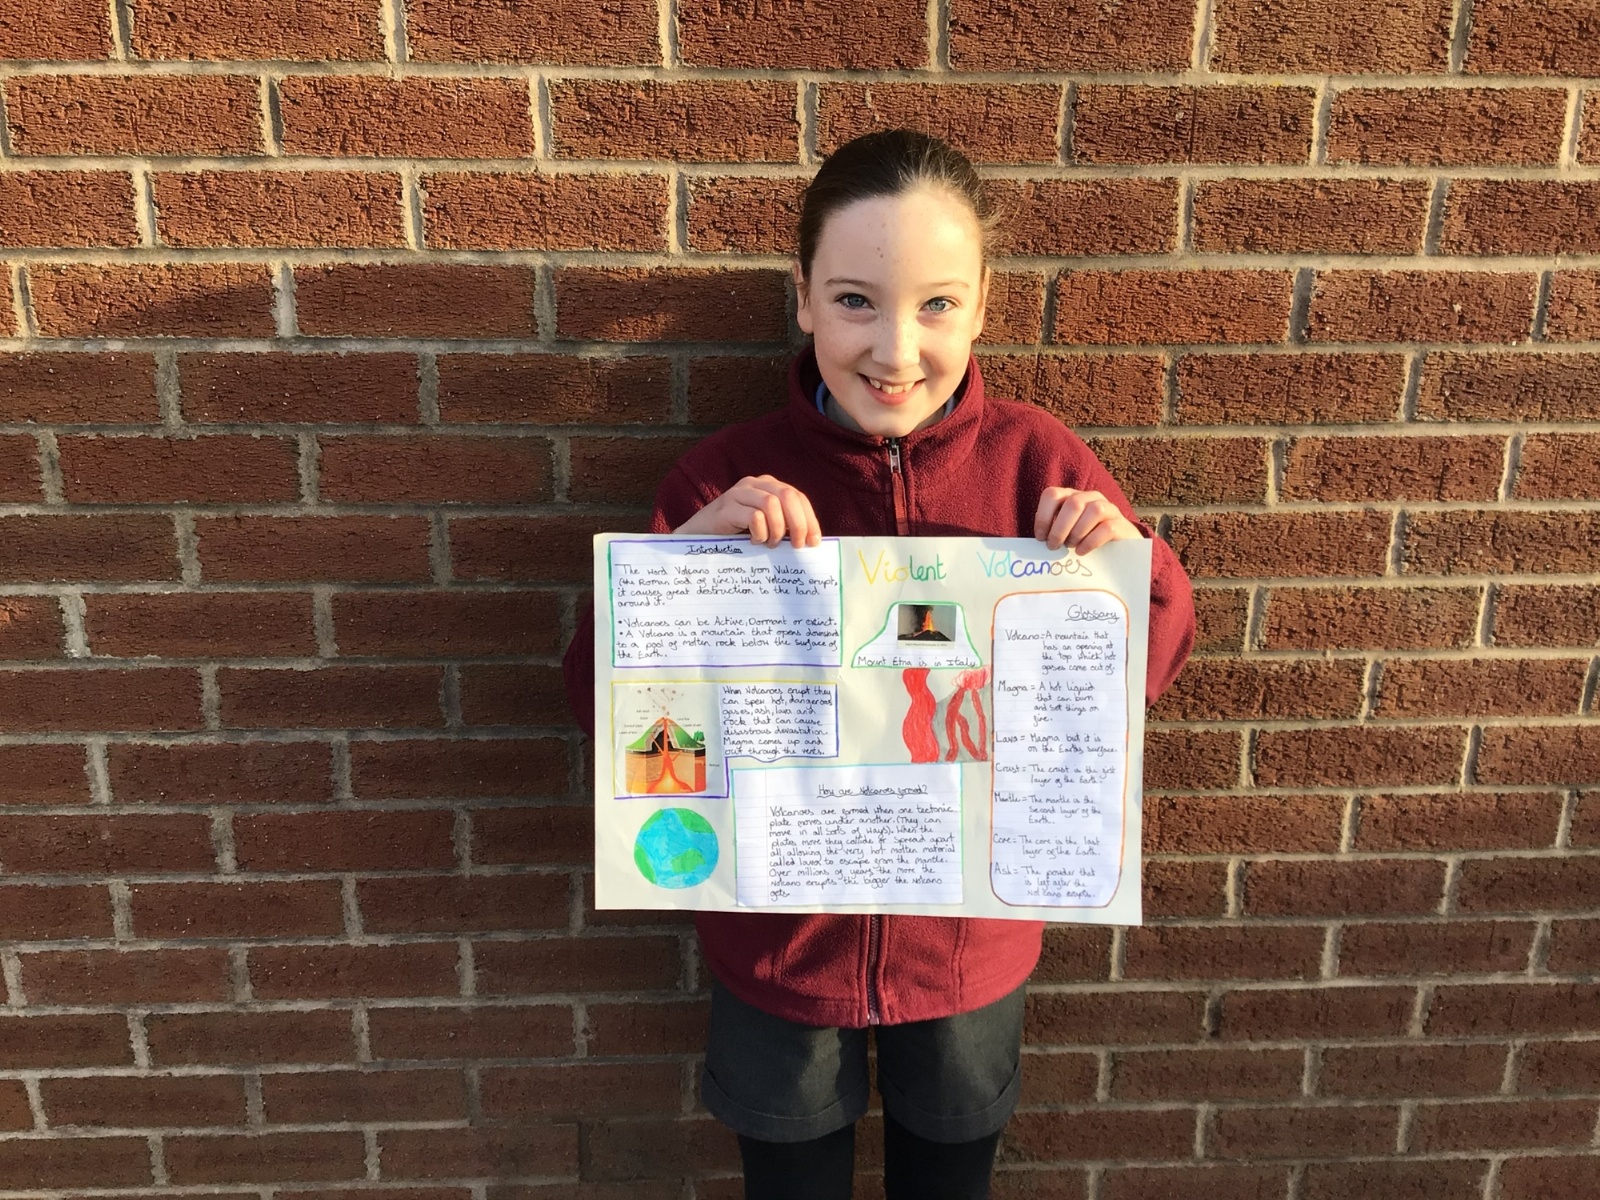 Introduction
The word Volcano comes from Vulcan
(the Roman God of fire). When Volcanos erupt,
it causes great destruction to the land
around it.
• Volcanoes can be Active, Dormant or extinct.
• A Volcano is a mountain that opens downward
to a pool of molten rock below the surface of
the Earth.
When Volcanoes erupt they
can spew hot, dangerous
gases, ash, lava and
rock that can cause
disastrous devastation.
Magma comes up and
out through the vents.
Violent Volcanoes
Mount Etna is in Italy
How are Volcanoes formed?
Volcanoes are formed when one tectonic
plate moves under another. (They can
move in all sorts of ways). When the
plates move they collide or spread apart
all allowing the very hot molten material
called lava to escape from the mantle.
Over millions of years the more the
volcano erupts the bigger the volcano
gets.
Glossary
Volcano = A mountain that
has an opening at
the top which hot
gasses come out of.
Magma = A hot liquid
that can burn
and set things on
fire.
Lava = Magma but it is
on the Earths surface.
Crust = The crust is the first
layer of the Earth.
Mantle = The mantle is the
second layer of the
Earth.
Core = The core is the last
layer of the Earth.
Ash = The powder that
is left after the
volcano erupts.